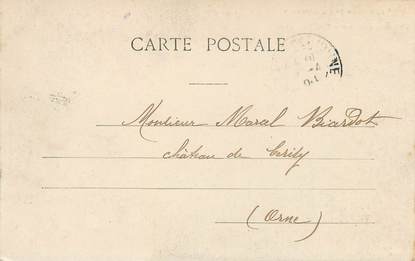 CARTE POSTALE
Monsieur Marcel Biardot
château de
(Orne)